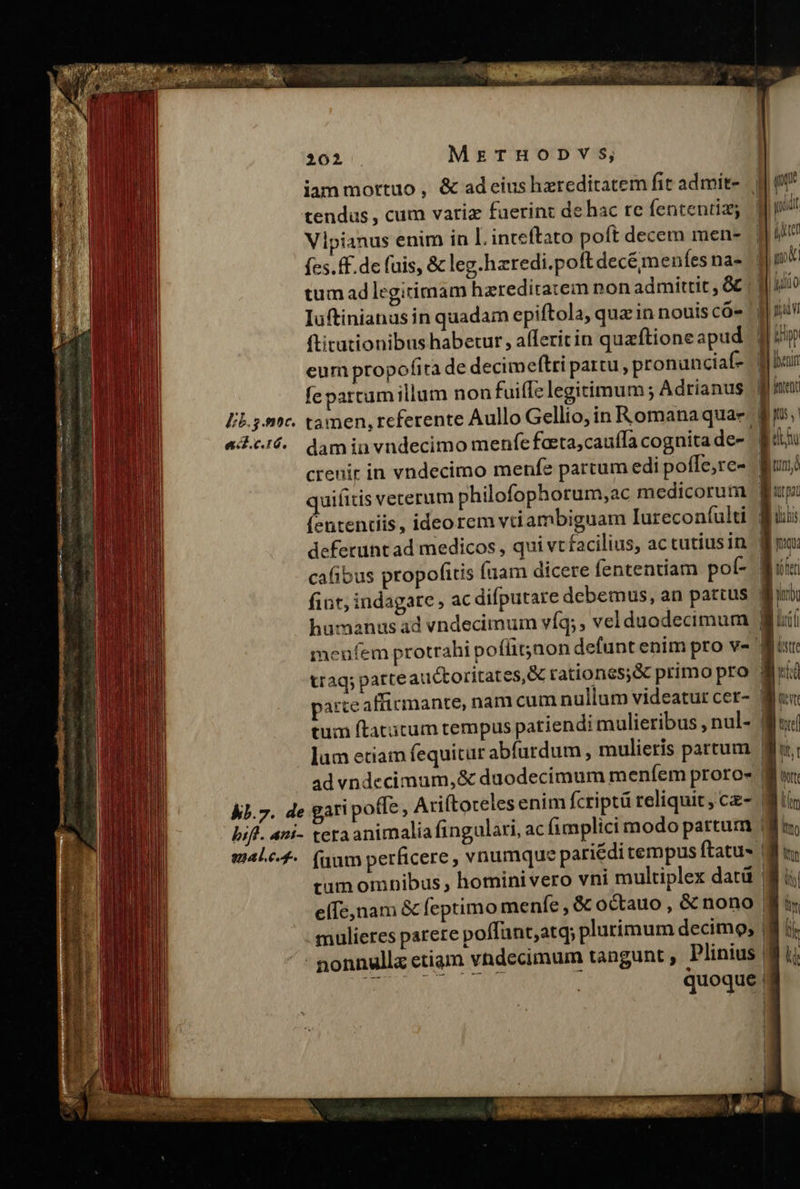 202 METHODVS,
iam mortuo, & ad eius hæreditatem sit admit-
tendus, cum variæ fuerint de hac re sententiæ;
Vlpianus enim in l. intestato post decem men-
ses.ff.de suis, & leg.hæredi.post decẽ menses na-
tum ad legitimam hæreditatem non admittit, &
Iustinianus in quadam epistola, quæ in nouis cõ-
stitutionibus habetur, asserit in quæstione apud
eum proposita de decimestri partu, pronuncias-
se partum illum non fuisse legitimum; Adrianus
lib.3.noc. tamen, referente Aullo Gellio, in Romana quæ-
act.c.16. dam in vndecimo mense fœta, caussa cognita de-
creuit in vndecimo mense partum edi posse, re-
quisitis veterum philosophorum, ac medicorum
sententiis, ideo rem vti ambiguam Iureconsulti
deferunt ad medicos, qui vt facilius, ac tutius in
casibus propositis suam dicere sententiam pos-
sint, indagare, ac disputare debemus, an partus
humanus ad vndecimum vsq;, vel duodecimum
mensem protrahi possit; non desunt enim pro v-
traq; parte auctoritates, & rationes; & primo pro
parte affirmante, nam cum nullum videatur cer-
tum statutum tempus patiendi mulieribus, nul-
lum etiam sequitur absurdum, mulieris partum
ad vndecimum, & duodecimum mensem proro-
lib.7. de gari posse, Aristoteles enim scriptũ reliquit, cæ-
hist. ani- tera animalia singulari, ac simplici modo partum
mal.c.4. suum perficere, vnumque pariẽdi tempus statu-
tum omnibus, homini vero vni multiplex datũ
esse, nam & septimo mense, & octauo, & nono
mulieres parere possunt, atq; plurimum decimo,
nonnullæ etiam vndecimum tangunt, Plinius
quoque